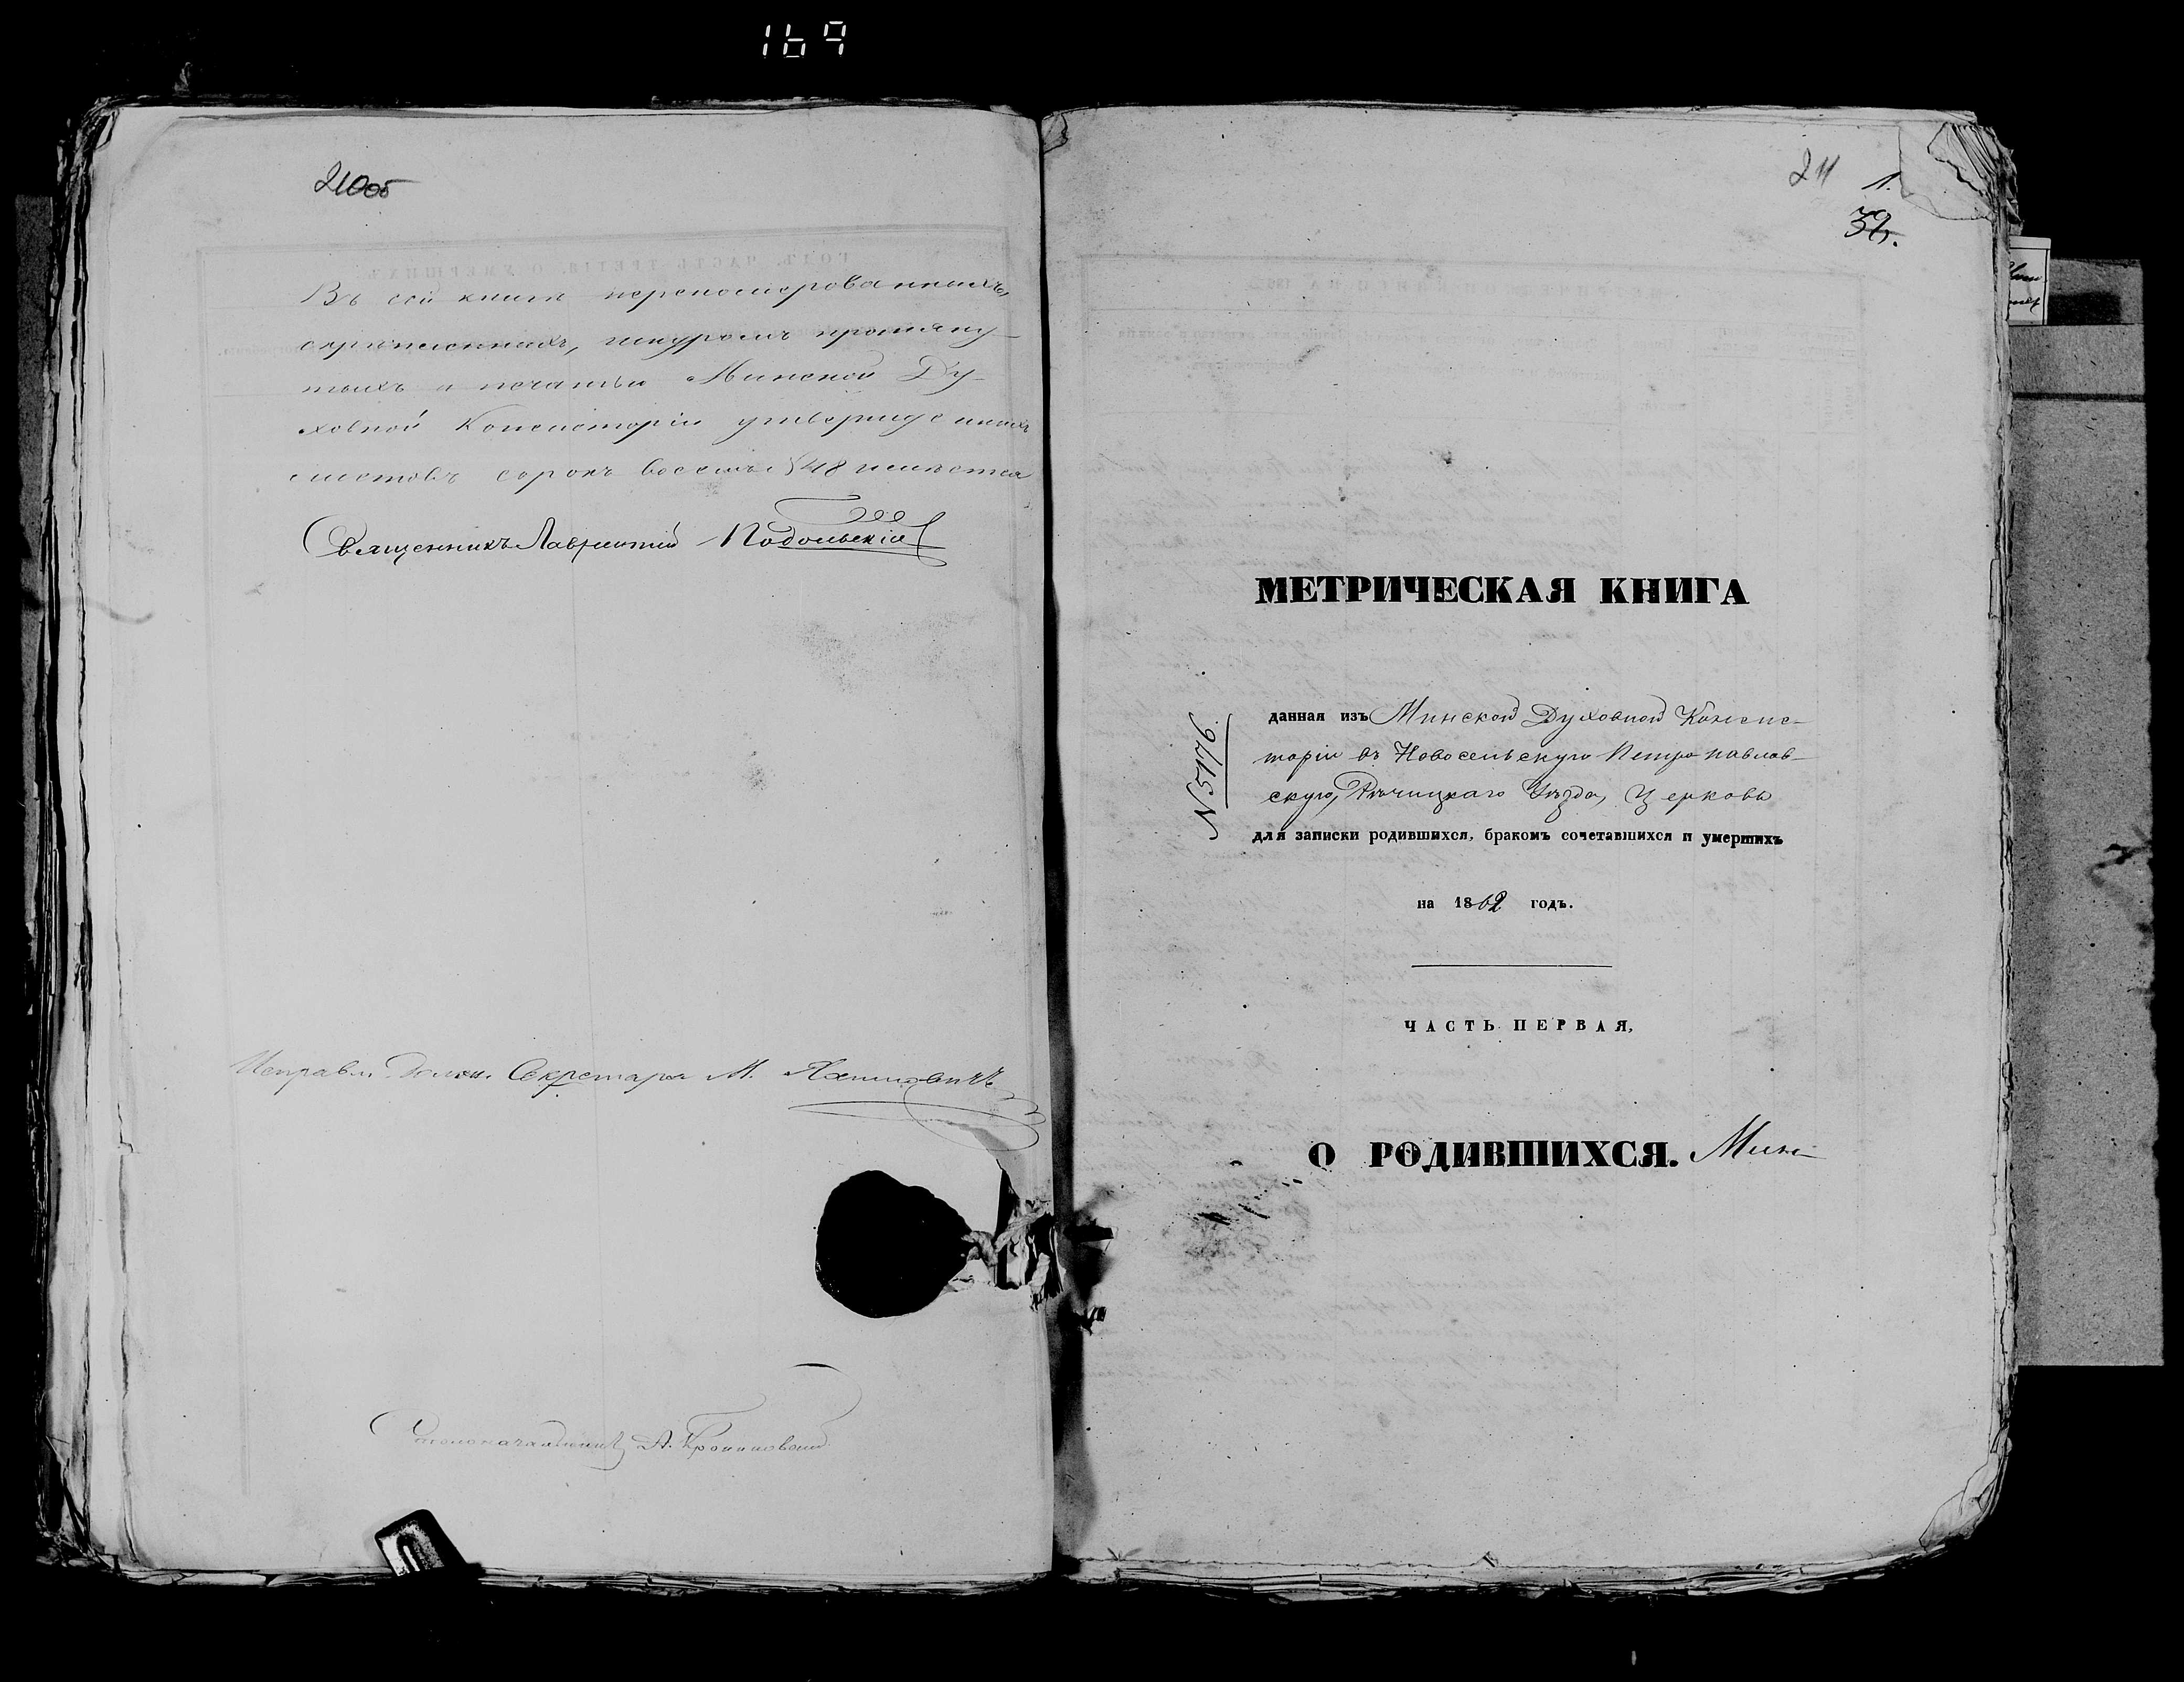 169
210об
Въ сей книгѣ переномерованныхъ,
скрѣпленныхъ, шнуромъ протяну-
тыхъ и печатью Минской Ду-
ховной Консисторіи утвержденныхъ
листовъ сорокъ восемь 48 имѣется
Священникъ Лаврентій Подольскій
Исправл. Должн. Секретаря М.
Столоначальникъ А.
211
1.
39.
МЕТРИЧЕСКАЯ КНИГА
N 5176
данная изъ Минской Духовной Консис-
торіи въ Новосельскую Петропавлов-
скую, Рѣчицкаго Уѣзда, Церковь
для записки родившихся, бракомъ сочетавшихся и умершихъ
на 1862 годъ.
ЧАСТЬ ПЕРВАЯ,
О РОДИВШИХСЯ. Мин-